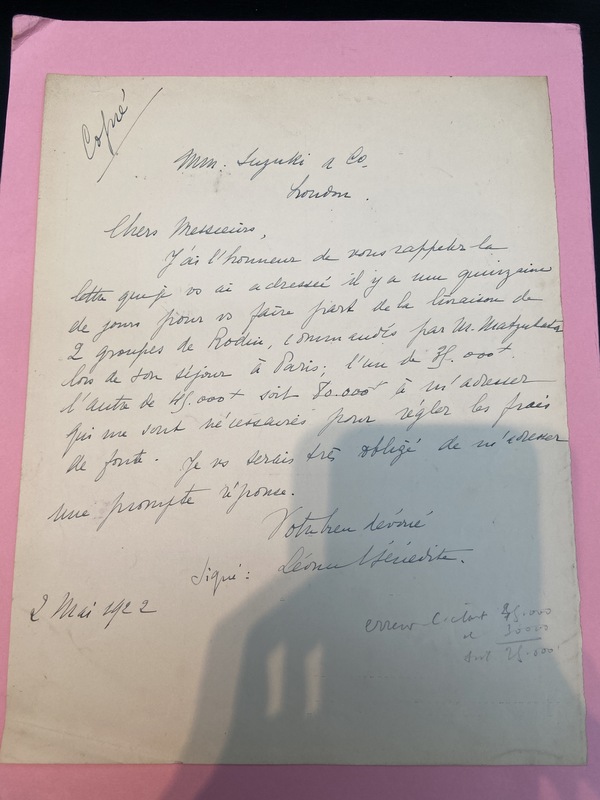 Copié
MM. Suzuki & Co.
London.
Chers Messieurs,
J'ai l'honneur de vous rappeler la
lettre que je vs ai adressée il y a une quinzaine
de jours pour vs faire part de la livraison de
2 groupes de Rodin, commandés par M. Matzukata
lors de son séjour à Paris; l'un de 35.000 f
l'autre de 45.000 f soit 80.000 f à m'adresser
qui me sont nécessaires pour régler les frais
de fonte. Je vs serais très obligé de m'adresser
une prompte réponse.
Votre bien dévoué
Signé: Léonce Bénédite.
2 Mai 1922
erreur c'était 45.000
et 30000
soit